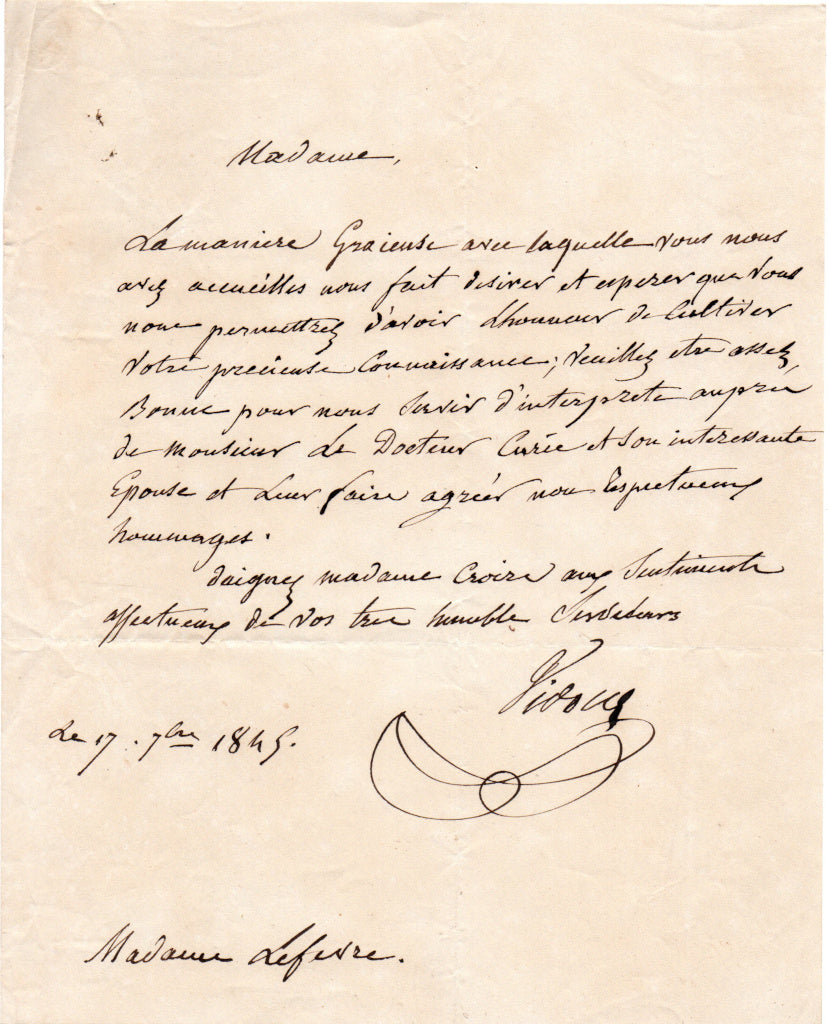 Madame,
La maniere Graieuse avec laquelle vous nous
avez accueilles nous fait desirer et esperer que vous
nous permettrez d'avoir l'honneur de Cultiver
votre precieuse Connaissance; veuillez etre assez
Bonne pour nous servir d'interprete aupres
de monsieur Le Docteur Curie et son interessante
Epouse et Leur faire agréer nos Respectueux
hommages.
daignez madame Croire aux Sentiments
affectueux de vos tres humble Serviteurs
Vidocq
Le 17. 7bre 1845.
Madame Lefevre.